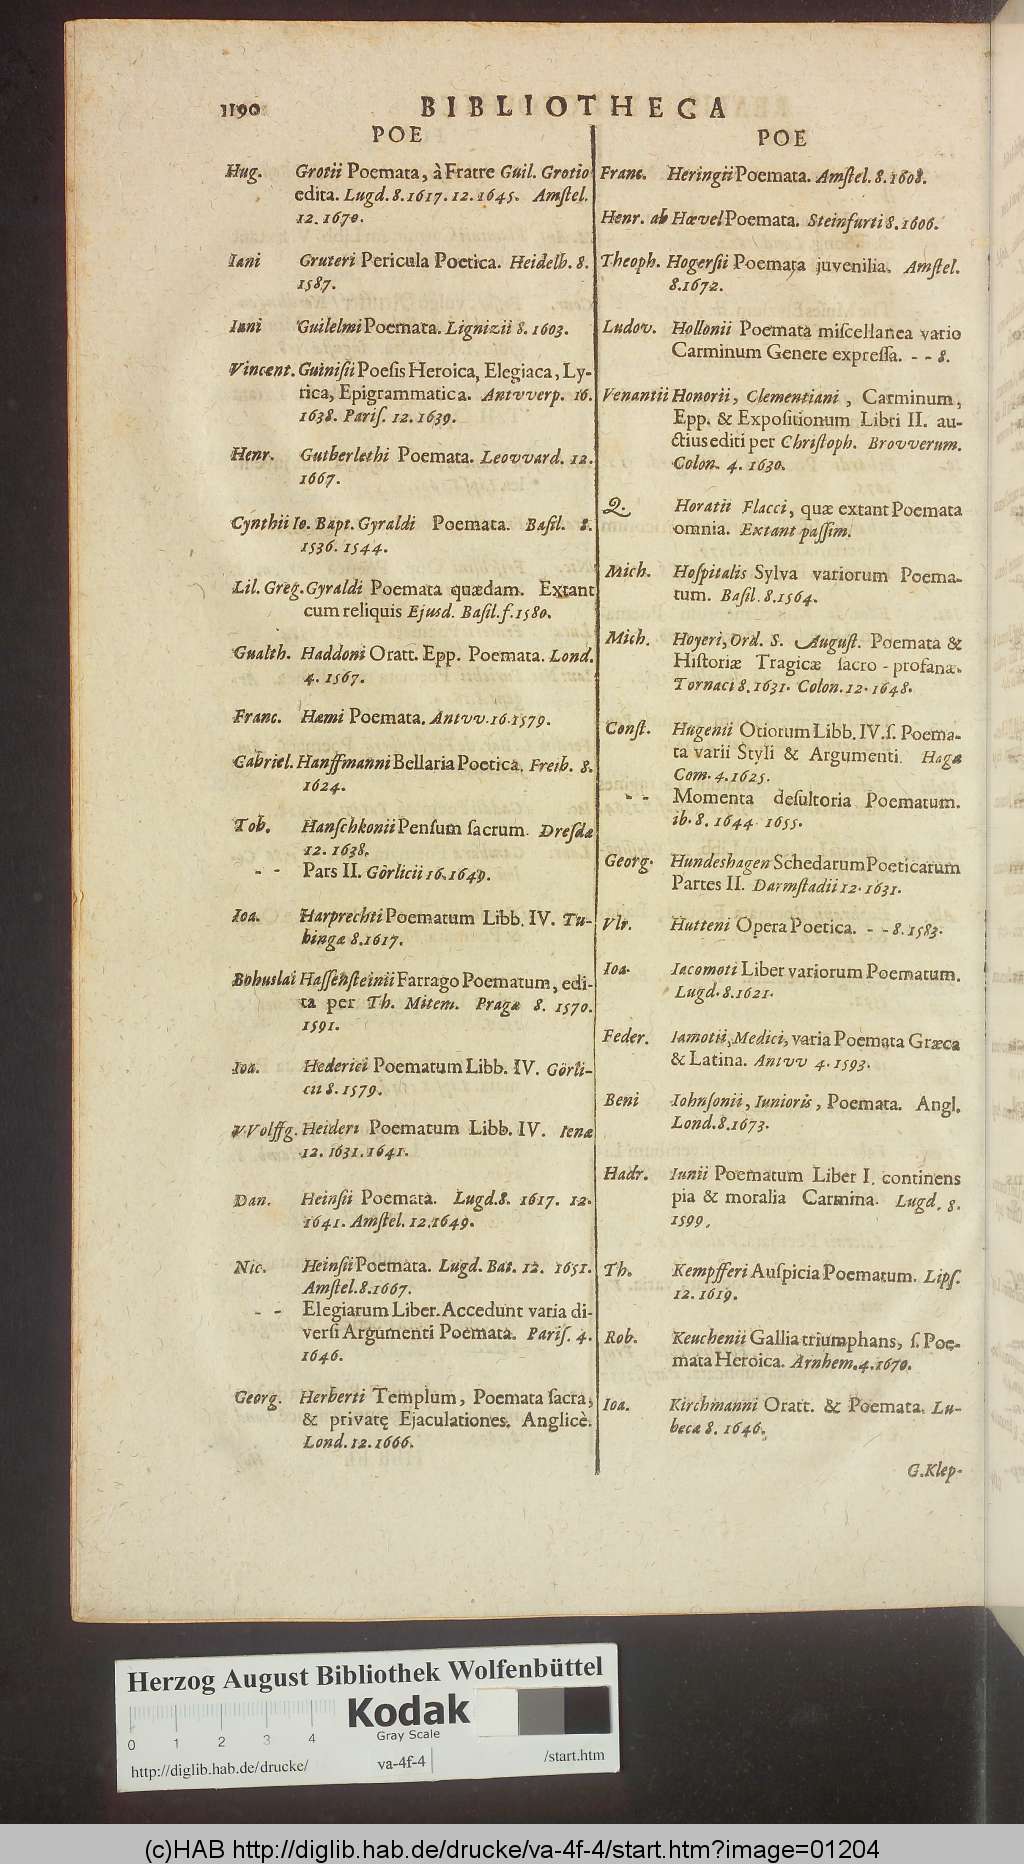 1190 BIBLIOTHECA
POE
Hug. Grotii Poemata, à Fratre Guil. Grotio
edita. Lugd. 8. 1617. 12. 1645. Amſtel.
12. 1670.
Iani Gruteri Pericula Poetica. Heidelb. 8.
1587.
Iani Guilelmi Poemata. Lignizii 8. 1603.
Vincent. Guiniſii Poeſis Heroica, Elegiaca, Ly-
rica, Epigrammatica. Antvverp. 16.
1638. Pariſ. 12. 1639.
Henr. Gutberlethi Poemata. Leovvard. 12.
1667.
Cynthii Io. Bapt. Gyraldi Poemata. Baſil. 8.
1536. 1544.
Lil. Greg. Gyraldi Poemata quædam. Extant
cum reliquis Ejusd. Baſil. f. 1580.
Gualth. Haddoni Oratt. Epp. Poemata. Lond.
4. 1567.
Franc. Hæmi Poemata. Antvv. 16. 1579.
Gabriel. Hanffmanni Bellaria Poetica. Freib. 8.
1624.
Tob. Hanſchkonii Penſum ſacrum. Dreſdæ
12. 1638.
- - Pars II. Görlicii 16. 1649.
Ioa. Harprechti Poematum Libb. IV. Tu-
bingæ 8. 1617.
Bohuslai Haſſenſteinii Farrago Poematum, edi-
ta per Th. Mitem. Pragæ 8. 1570.
1591.
Ioa. Hederici Poematum Libb. IV. Görli-
cii 8. 1579.
VVolffg. Heideri Poematum Libb. IV. Ienæ
12. 1631. 1641.
Dan. Heinſii Poemata. Lugd. 8. 1617. 12.
1641. Amſtel. 12. 1649.
Nic. Heinſii Poemata. Lugd. Bat. 12. 1651.
Amſtel. 8. 1667.
- - Elegiarum Liber. Accedunt varia di-
verſi Argumenti Poemata. Pariſ. 4.
1646.
Georg. Herberti Templum, Poemata ſacra,
& privatę Ejaculationes. Anglicè.
Lond. 12. 1666.
POE
Franc. Heringii Poemata. Amſtel. 8. 1608.
Henr. ab Hœvel Poemata. Steinfurti 8. 1606.
Theoph. Hogerſii Poemata juvenilia. Amſtel.
8. 1672.
Ludov. Hollonii Poemata miſcellanea vario
Carminum Genere expreſſa. - - 8.
Venantii Honorii, Clementiani, Carminum,
Epp. & Expoſitionum Libri II. au-
ctius editi per Chriſtoph. Brovverum.
Colon. 4. 1630.
Q. Horatii Flacci, quæ extant Poemata
omnia. Extant paſſim.
Mich. Hoſpitalis Sylva variorum Poema-
tum. Baſil. 8. 1564.
Mich. Hoyeri, Ord. S. Auguſt. Poemata &
Hiſtoriæ Tragicæ ſacro-profanæ.
Tornaci 8. 1631. Colon. 12. 1648.
Conſt. Hugenii Otiorum Libb. IV. ſ. Poema-
ta varii Styli & Argumenti. Hagæ
Com. 4. 1625.
- - Momenta deſultoria Poematum.
ib. 8. 1644. 1655.
Georg. Hundeshagen Schedarum Poeticarum
Partes II. Darmſtadii 12. 1631.
Vlr. Hutteni Opera Poetica. - - 8. 1583.
Ioa. Iacomoti Liber variorum Poematum.
Lugd. 8. 1621.
Feder. Iamotii, Medici, varia Poemata Græca
& Latina. Antvv 4. 1593.
Beni Iohnſonii, Iunioris, Poemata. Angl.
Lond. 8. 1673.
Hadr. Iunii Poematum Liber I. continens
pia & moralia Carmina. Lugd. 8.
1599.
Th. Kempfferi Auſpicia Poematum. Lipſ.
12. 1619.
Rob. Keuchenii Gallia triumphans, ſ. Poe-
mata Heroica. Arnhem. 4. 1670.
Ioa. Kirchmanni Oratt. & Poemata. Lu-
becæ 8. 1646.
G. Klep-
Herzog August Bibliothek Wolfenbüttel
Kodak
Gray Scale
0 1 2 3 4
http://diglib.hab.de/drucke/ va-4f-4 /start.htm
(c)HAB http://diglib.hab.de/drucke/va-4f-4/start.htm?image=01204